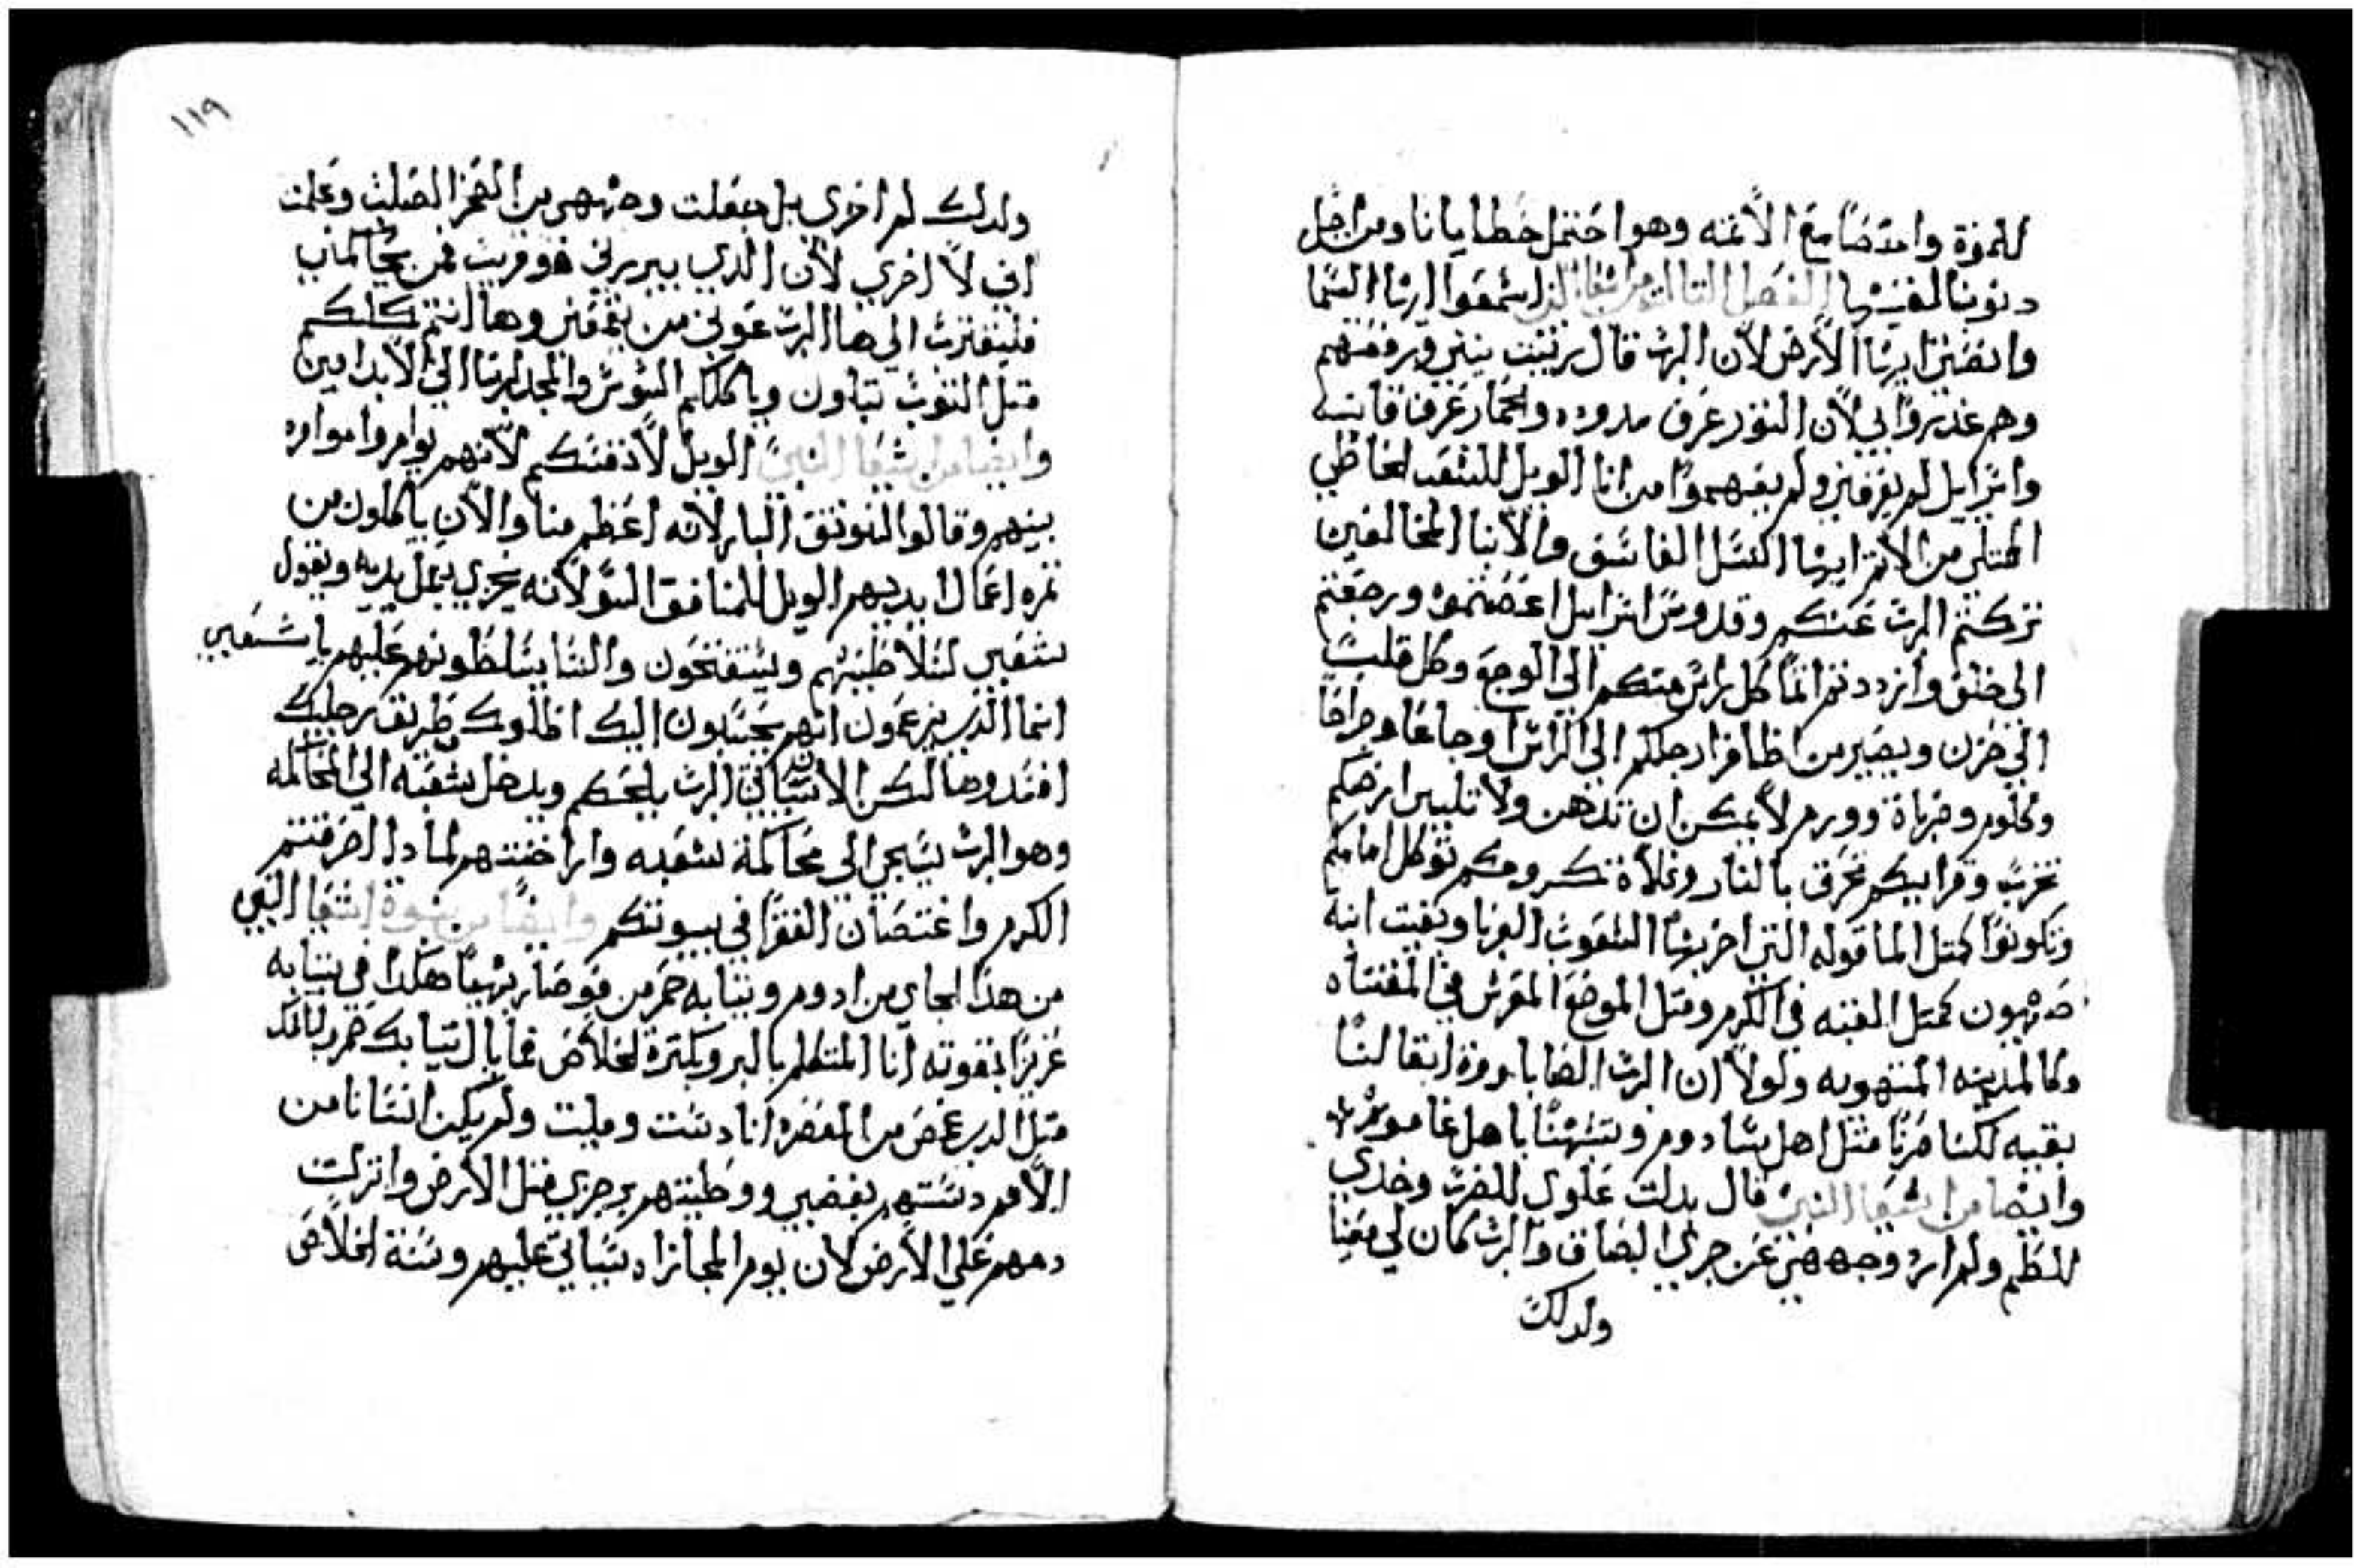 للموة واحصا مع الأثمه وهو احتمل خطايانا ومن اجل
دنوبنا لفيتها الفصل التالت من اشعيا النبي اسمعوا ايها السما
وانصتي ايها الأرض لأن الرب قال ربيت بنين ورفعتهم
وهم غدروا بي لأن التور عرف مدوده والحمار عرف قانيه
واسراييل لم يعرفني ولم يفهموا من انا الويل للشعب الخاطي
الممتلي من الاتم ايها النسل الفاسق والأبنا المخالفين
تركتم الرب عنكم وقدوس اسراييل اغضبتموه ورجعتم
الى خلف وازددتم اتما كل راس منكم الي الوجع وكل قلب
الي حزن ويصير من اظافر ارجلكم الي الراس اوجاعا وجراحا
وكلوم وضرباة وورم لأ يمكن ان تدهن ولا تليين ارضكم
تخرب وقراييكم تحرق بالنار وغلاة كرومكم توكل امامكم
وتكونوا كمتل الما قوله التي اخربها الشعوب الغربا وبقيت ابنة
صهيون كمتل القبه في الكرم ومتل الموضع المعرش في المقتاه
وكالمدينه المنهوبه ولولا ان الرب الضاباووة ابقا لنا
بقيه لكنا صرنا متل اهل سادوم وتشبهنا باهل غامورا
وايضا من اشعيا النبي قال بدلت علوي للضرب وخدي
للطم ولم ارد وجههي عن جري البصاق والرب كان لي معينا
ولدلك
١١٩
ولدلك لم اخزي بل جعلت وجههي من الصخر الصلب وعلمت
اني لأ اخزي لأن الدي يبررني هو قريب فمن يحاكمني
فليقترب الي ها الرب عوني من يتمقني وها انتم كلكم
متل التوب تبلون وياكلكم السوس والمجد لربنا الى الأبد امين
وايضا من اشعيا النبي الويل لأنفسكم لأنهم توامروا موامره
بينهم وقالوا لنوتق البار لأنه اعظم منا والأن ياكلون من
تمره اعمال ايديهم الويل للمنافق السو لأنه يجزي بعمل يديه ويقول
شعبي لسلاطينهم ويستفتحون والنسا يسلطونهم عليهم يا شعبي
انما الدين يزعمون انهم يحتبون اليك اظلوك وطريق رجليك
افسدوها لكن الأن سياتي الرب يلحكم ويدخل بشعبه الي المحاكمه
وهو الرب سيجي الي محاكمة شعبه واراخنتهم لمادا احرقتم
الكرم واغتصان الفقرا في بيوتكم وايضا من نبوة اشعيا النبي
من هدا الجاي من ادوم وتيابه حمر من فوصار بهيا هكدا في تيابه
عزيزا بقوته انا المتكلم بالبر وبكترة الخلاص فما بال تيابك حمر لباسك
متل الدي عصر من المعصره انا دست ومليت ولم يكن انسانا من
الأمم دستهم بغضبي ووطيتهم برجزي متل الأرض وانزلت
دمهم علي الأرض لأن يوم المجازاه سياتي عليهم وسنة الخلاص